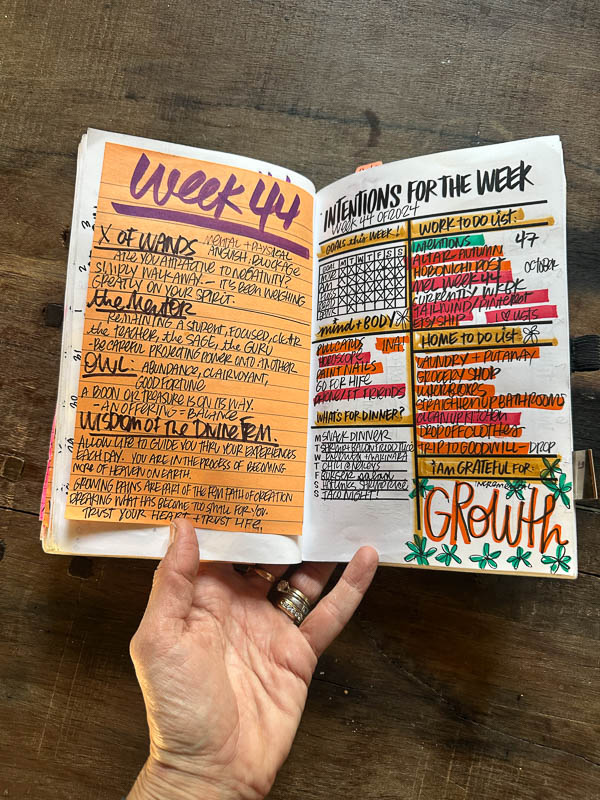 Week 44
X OF WANDS MENTAL + PHYSICAL
ANGUISH, BLOCKAGE
ARE YOU ATTRACTIVE TO NEGATIVITY?
SIMPLY WALK AWAY - IT'S BEEN WEIGHING
GREATLY ON YOUR SPIRIT.
the MENTOR
REMAINING A STUDENT, FOCUSED, CLEAR
the TEACHER, the SAGE, the GURU
- BE CAREFUL PROJECTING POWER ONTO ANOTHER
OWL: ABUNDANCE, CLAIRVOYANT,
GOOD FORTUNE
A BOON OR TREASURE IS ON ITS WAY.
- AN OFFERING - BALANCE -
WISDOM of the DIVINE FEM.
ALLOW LIFE TO GUIDE YOU THRU YOUR EXPERIENCES
EACH DAY. YOU ARE IN THE PROCESS OF BECOMING
MORE OF HEAVEN ON EARTH.
GROWING PAINS ARE PART OF THE FEM PATH OF CREATION
BREAKING WHAT HAS BECOME TOO SMALL FOR YOU.
TRUST YOUR HEART + TRUST LIFE.
INTENTIONS FOR THE WEEK
WEEK 44 OF 2024
GOALS this WEEK!
M T W T F S S
mind + BODY
PULL CARDS INA!
HOROSCOPE
PAINT NAILS
GO FOR HIFE
FRIENDS
WHAT'S FOR DINNER?
M SNACK DINNER
T
W
T CHILI
F SALAD
S
S TACO NIGHT!
WORK TO DO LIST:
INTENTIONS 47
ALTAR-AUTUMN
HOBONICHI POST OCTOBER
MEL WEEK 44
CURRENTLY INKED
TAILWIND/PINTEREST
ETSY SHIP
HOME TO DO LIST:
LAUNDRY + PUTAWAY
GROCERY SHOP
STRAIGHTEN UP BATHROOMS
CLEAN UP KITCHEN
DROP OFF CLOTHES
TRIP TO GOODWILL - DROP
I AM GRATEFUL FOR:
INCREMENTAL
GROWTH